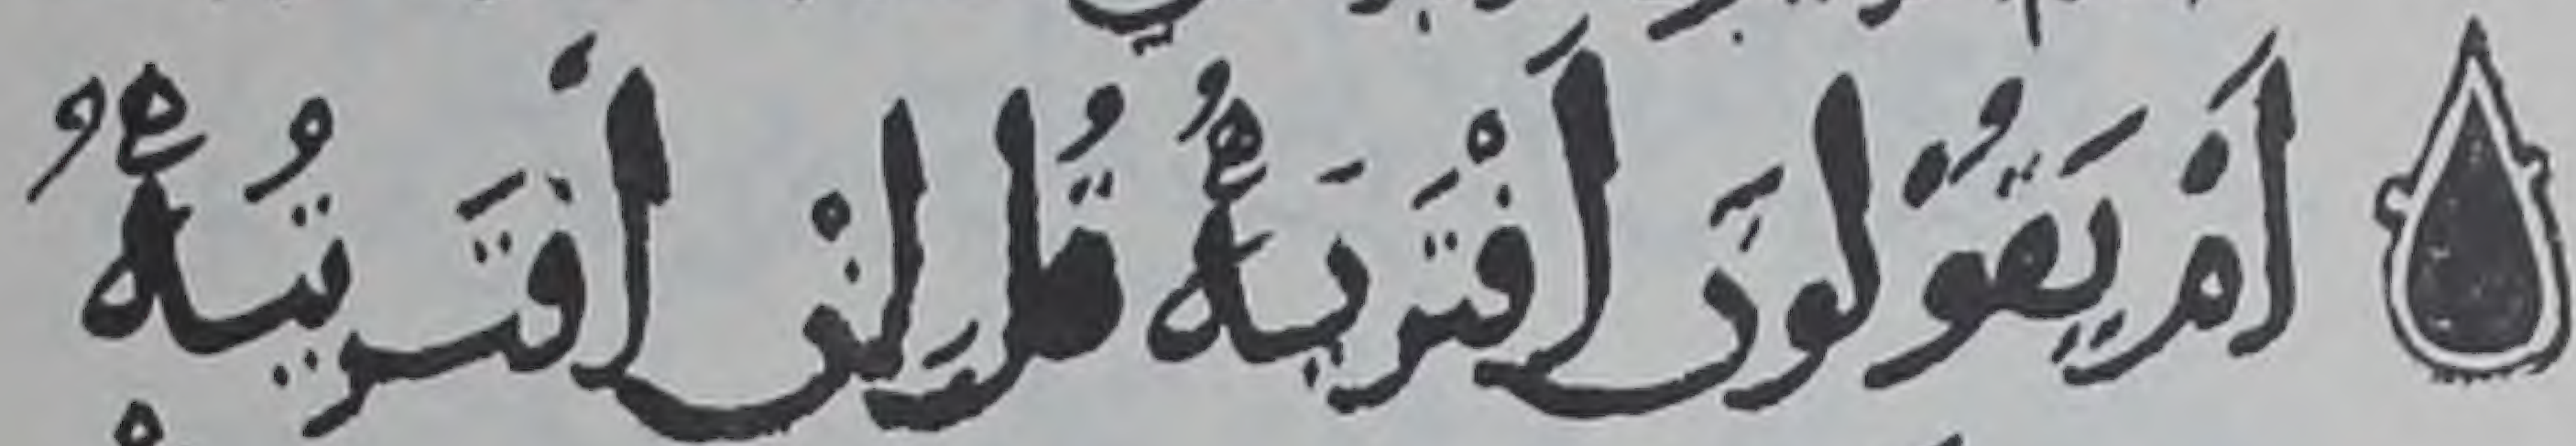 اَمْ يَقُوْلُوْنَ افْتَرَىٰهُ قُلْ اِنِ افْتَرَيْتُهٗ